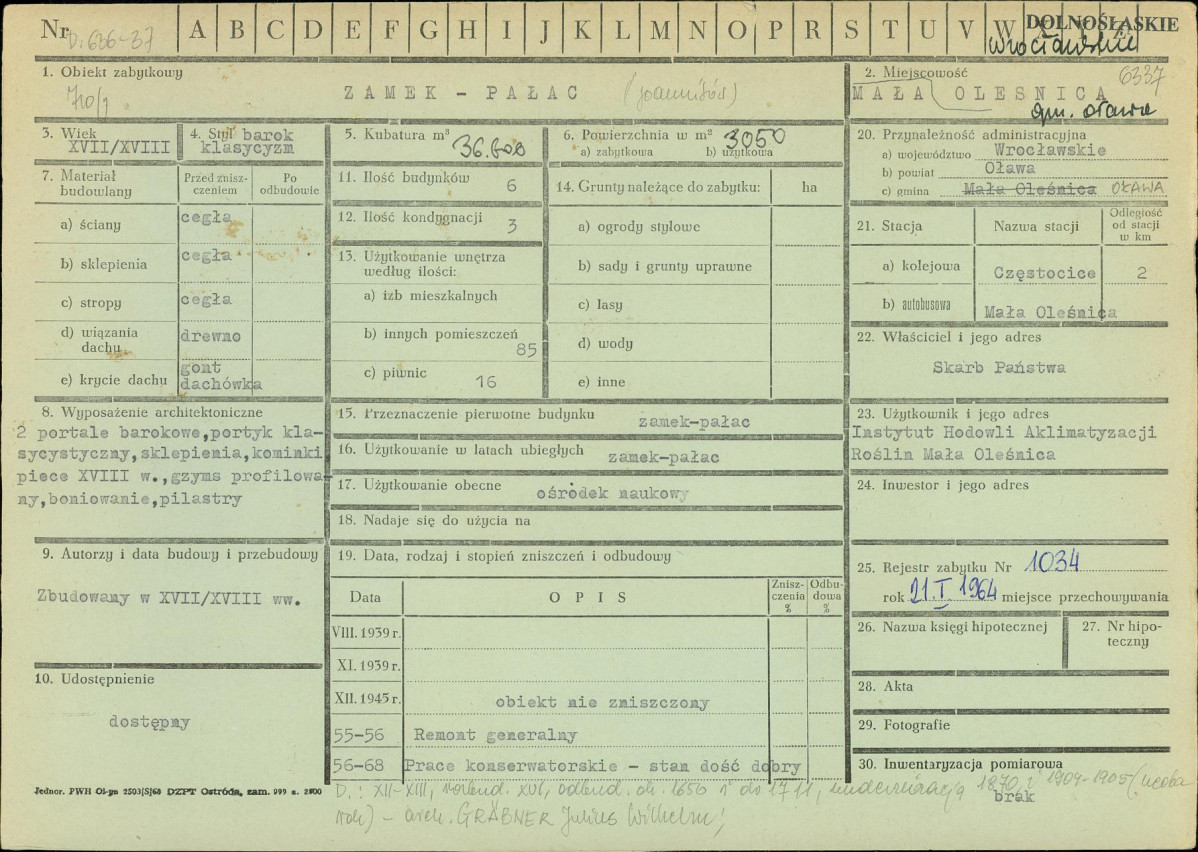 Nr D.: 636-37 A B C D E F G H I J K L M N O P R S T U V W DOLNOŚLĄSKIE
Wrocławskie
1. Obiekt zabytkowy
710/1
ZAMEK - PAŁAC (joannitów)
2. Miejscowość 6337
MAŁA OLEŚNICA
gm. Oława
3. Wiek
XVII/XVIII
4. Styl barok
klasycyzm
5. Kubatura m³
36.600
6. Powierzchnia w m² 3050
a) zabytkowa b) użytkowa
7. Materiał
budowlany
Przed znisz-
czeniem
Po
odbudowie
a) ściany cegła
b) sklepienia cegła
c) stropy cegła
d) wiązania
dachu drewno
e) krycie dachu gont
dachówka
8. Wyposażenie architektoniczne
2 portale barokowe,portyk kla-
sycystyczny,sklepienia,kominki
piece XVIII w.,gzyms profilowa-
ny,boniowanie,pilastry
9. Autorzy i data budowy i przebudowy
Zbudowany w XVII/XVIII ww.
10. Udostępnienie
dostępny
11. Ilość budynków 6
12. Ilość kondygnacji 3
13. Użytkowanie wnętrza
według ilości:
a) izb mieszkalnych
b) innych pomieszczeń
85
c) piwnic 16
14. Grunty należące do zabytku: ha
a) ogrody stylowe
b) sady i grunty uprawne
c) lasy
d) wody
e) inne
15. Przeznaczenie pierwotne budynku zamek-pałac
16. Użytkowanie w latach ubiegłych zamek-pałac
17. Użytkowanie obecne ośrodek naukowy
18. Nadaje się do użycia na
19. Data, rodzaj i stopień zniszczeń i odbudowy
Data OPIS Znisz-
czenia
% Odbu-
dowa
%
VIII. 1939 r.
XI. 1939 r.
XII. 1945 r. obiekt nie zniszczony
55-56 Remont generalny
56-68 Prace konserwatorskie - stan dość dobry
20. Przynależność administracyjna
a) województwo Wrocławskie
b) powiat Oława
c) gmina Mała Oleśnica OŁAWA
21. Stacja Nazwa stacji Odległość
od stacji
w km
a) kolejowa Częstocice 2
b) autobusowa Mała Oleśnica
22. Właściciel i jego adres
Skarb Państwa
23. Użytkownik i jego adres
Instytut Hodowli Aklimatyzacji
Roślin Mała Oleśnica
24. Inwestor i jego adres
25. Rejestr zabytku Nr 1034
rok 21.I 1964 miejsce przechowywania
26. Nazwa księgi hipotecznej
27. Nr hipo-
teczny
28. Akta
29. Fotografie
30. Inwentaryzacja pomiarowa
brak
Jednor. PWH Ol-yn 2503|S|68 DZPT Ostróda, zam. 999 n. 2000
D.: XII-XIII, rozbud. XVI, odbud. ok. 1650 r. do 1711, modernizacja 1870 i 1904-1905 (neoba
rok) - arch. GRÄBNER Julius Wilhelm;